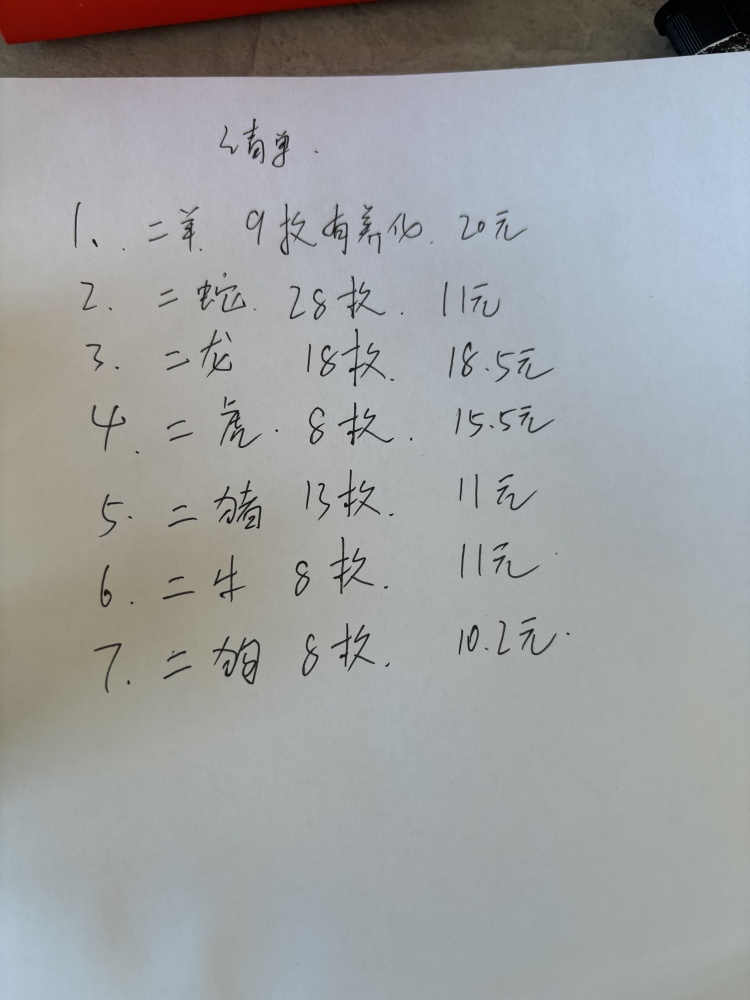 清单.
1、二羊 9枚有养化. 20元
2. 二蛇. 28枚. 11元
3. 二龙 18枚. 18.5元
4. 二虎. 8枚. 15.5元
5. 二猪 13枚. 11元
6. 二牛 8枚. 11元.
7. 二狗 8枚. 10.2元.